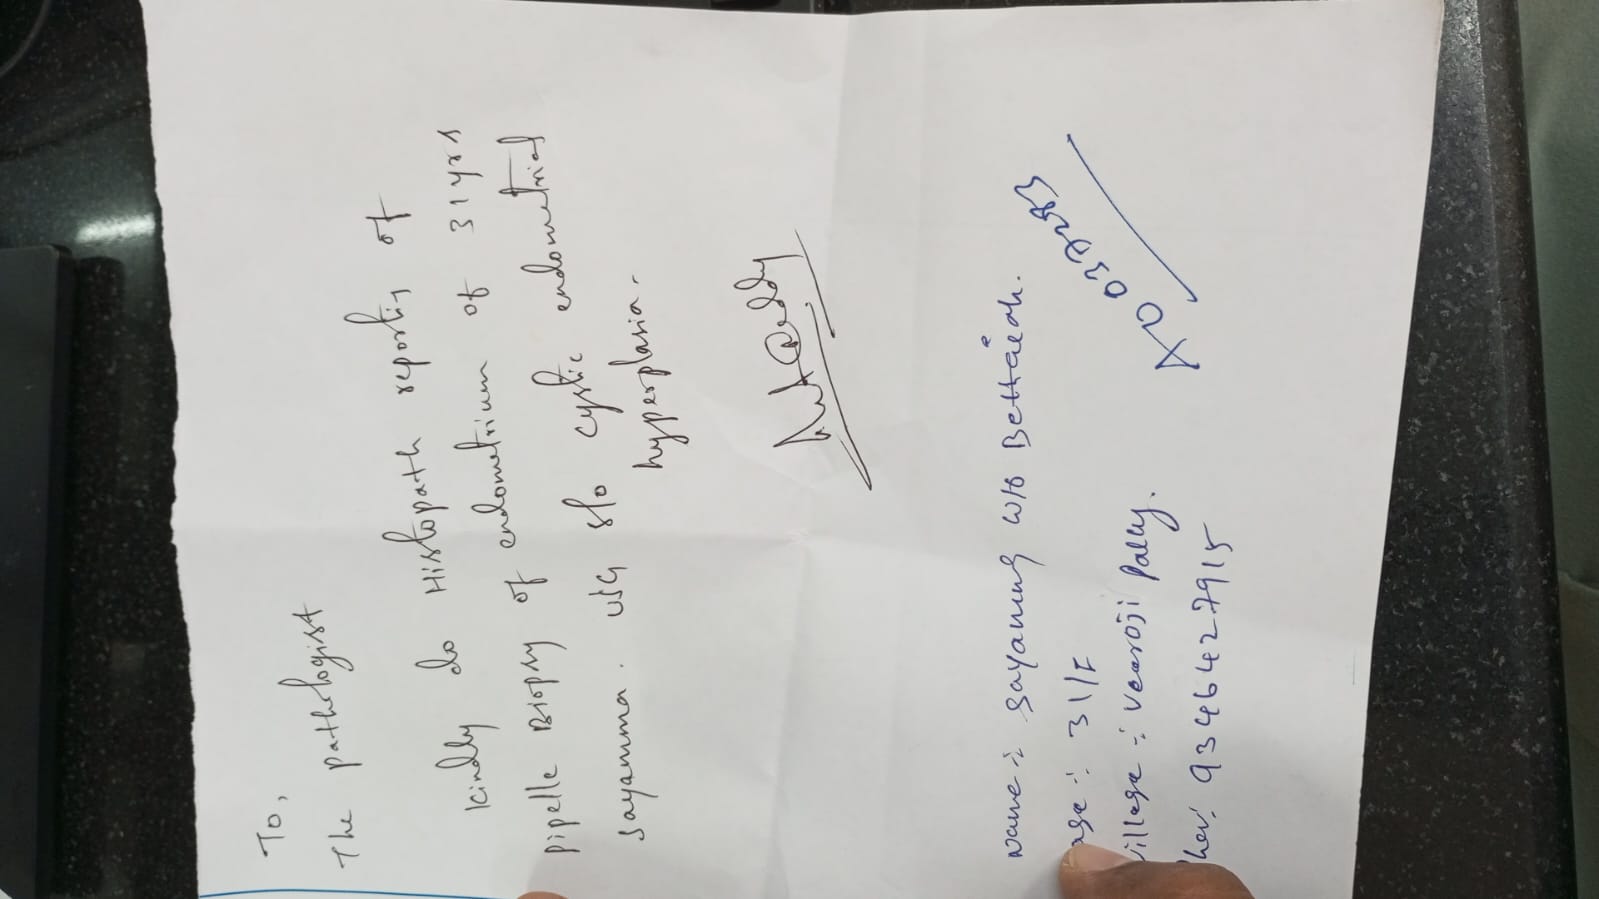 To,
The pathologist
Kindly do Histopath reporting of
pipelle Biopsy of endometrium of 31 yrs
Sayamma. USG s/o cystic endometrial
hyperplasia.
Name :- Sayamma w/o Bettaiah.
age : 31/F
village :- Veeroji Pally.
9346427915